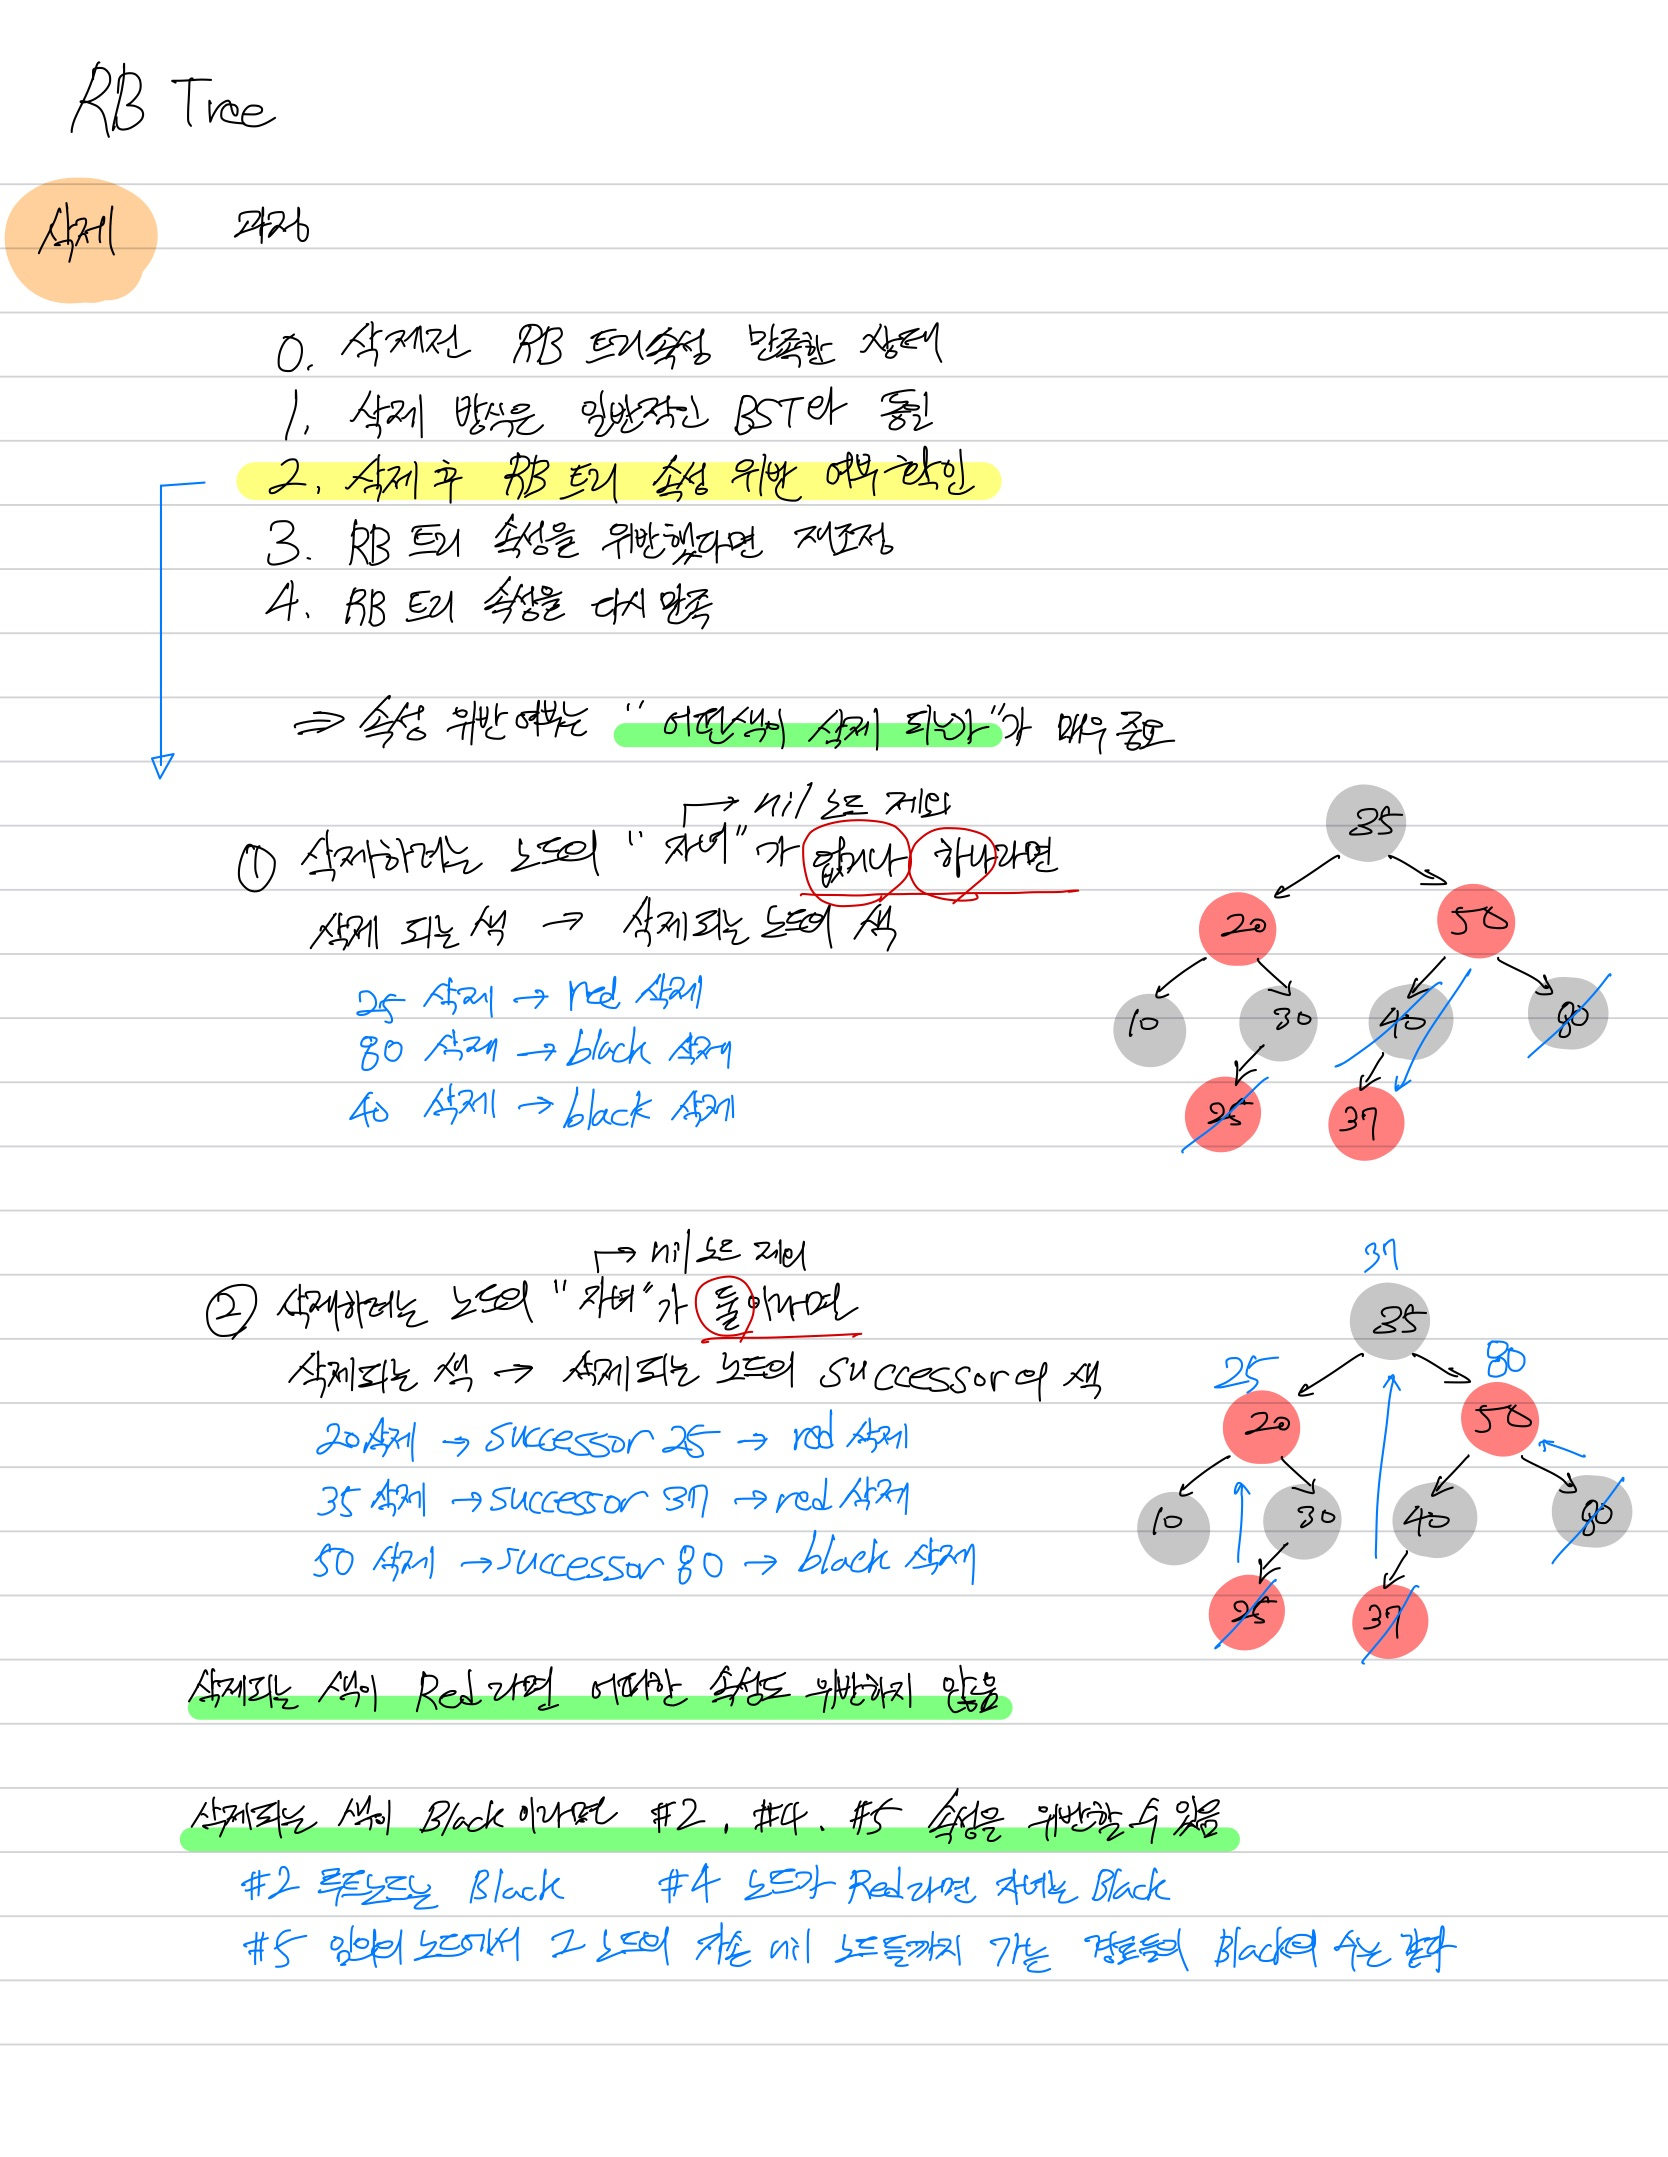 RB Tree
삭제 과정
0. 삭제전 RB 트리속성 만족한 상태
1. 삭제 방식은 일반적인 BST와 동일
2. 삭제 후 RB 트리 속성 위반 여부 확인
3. RB 트리 속성을 위반했다면 재조정
4. RB 트리 속성을 다시 만족
⇒ 속성 위반여부는 "어떤색이 삭제 되는가"가 매우 중요
→ nil 노드 제외
① 삭제하려는 노드의 "자녀"가 없거나 하나라면
삭제 되는 색 → 삭제되는 노드의 색
25 삭제 → red 삭제
80 삭제 → black 삭제
40 삭제 → black 삭제
35
20 50
10 30 40 80
25 37
→ nil 노드 제외
② 삭제하려는 노드의 "자녀"가 둘이라면
삭제되는 색 → 삭제되는 노드의 successor의 색
20삭제 → successor 25 → red 삭제
35 삭제 → successor 37 → red 삭제
50 삭제 → successor 80 → black 삭제
37
35
25 80
20 50
10 30 40 80
25 37
삭제되는 색이 Red라면 어떠한 속성도 위반하지 않음
삭제되는 색이 Black이라면 #2, #4, #5 속성을 위반할 수 있음
#2 루트노드는 Black #4 노드가 Red라면 자녀는 Black
#5 임의의 노드에서 그 노드의 자손 nil 노드들까지 가는 경로들의 Black의 수는 같다